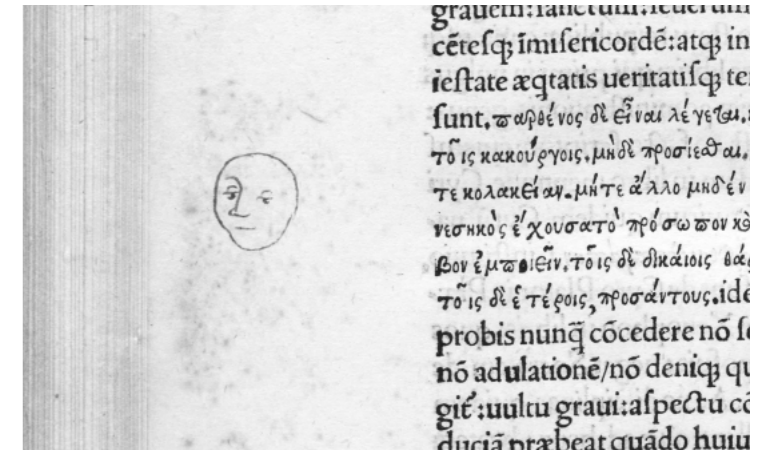 grauem:sanctum:seuerum
cētesq; īmisericordē:atq; in
iestate æqtatis ueritatisq; te
sunt. παρθένος δὲ εἶναι λέγεται.
τοῖς κακούργοις. μηδὲ προσίεσθαι.
τε κολακείαν. μήτε ἄλλο μηδέν
νεσηκὸς ἔχουσα τὸ πρόσωπον κ
βον ἐμποιεῖν. τοῖς δὲ δικαίοις θά
τοῖς δὲ ἑτέροις, προσάντους. ide
probis nunq̄ cōcedere nō s
nō adulationē/nō deniq; qu
git:uultu graui:aspectu cō
duciā præbeat quādo huiu